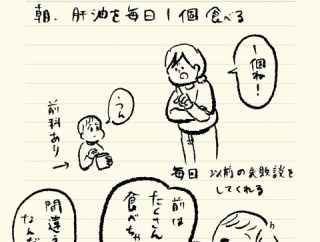 朝、肝油を毎日1個食べる
1個ね!
うん
前科あり
毎日 以前の失敗談を
してくれる
前は
たくさん
食べちゃ
間違う
なんだ